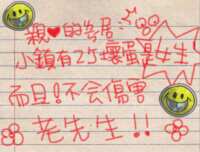 親♥的签居:
小鎮有25壞蛋是女生
而且!不会傷害
老先生!!